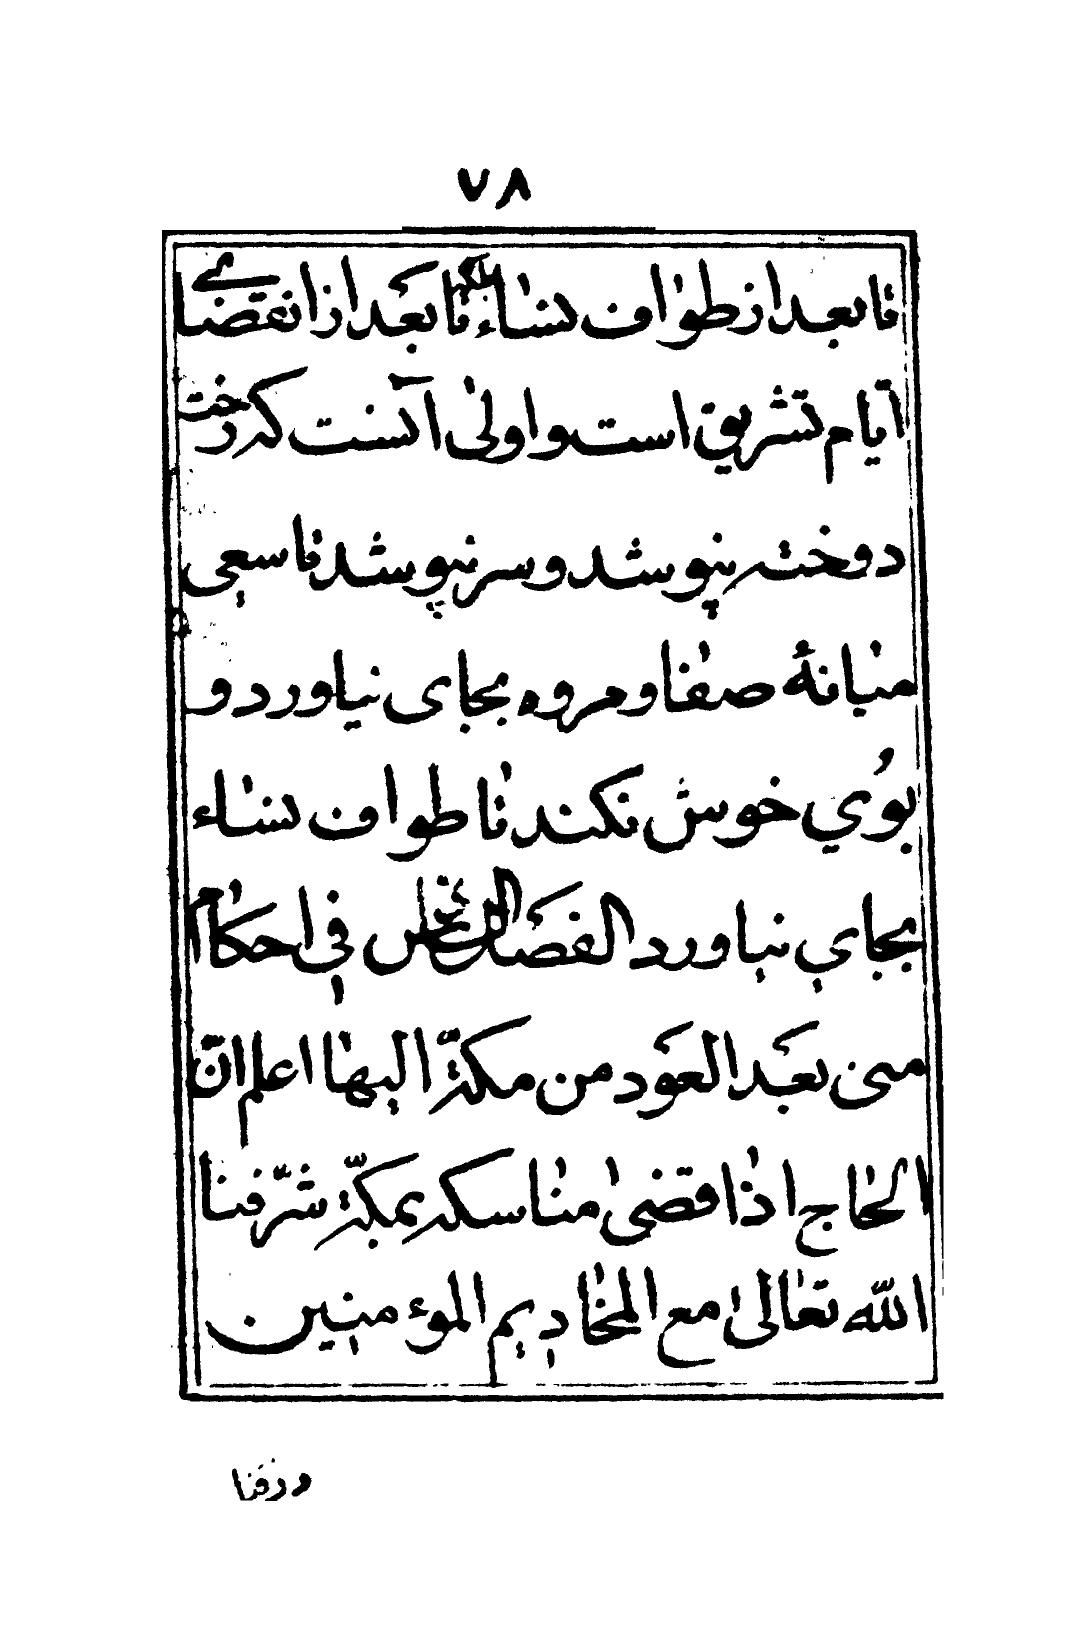 ۷۸
تا بعد از طواف نساء بلکه تا بعد از انقضاے
ایّام تشریق است و اولی آنست که رخت
دوخته نپوشد و سر نپوشد تا سعی
میانهٔ صفا و مروه بجای نیاورد و
بُوی خوش نکند تا طواف نساء
بجای نیاورد الفصل الخامس فی احکام
منی بعد العود من مکّة الیها اعلم انّ
الحاج اذا قضی مناسکه بمکّة شرّفنا
اللّه تعالی مع المخادیم المؤمنین
ورزقنا